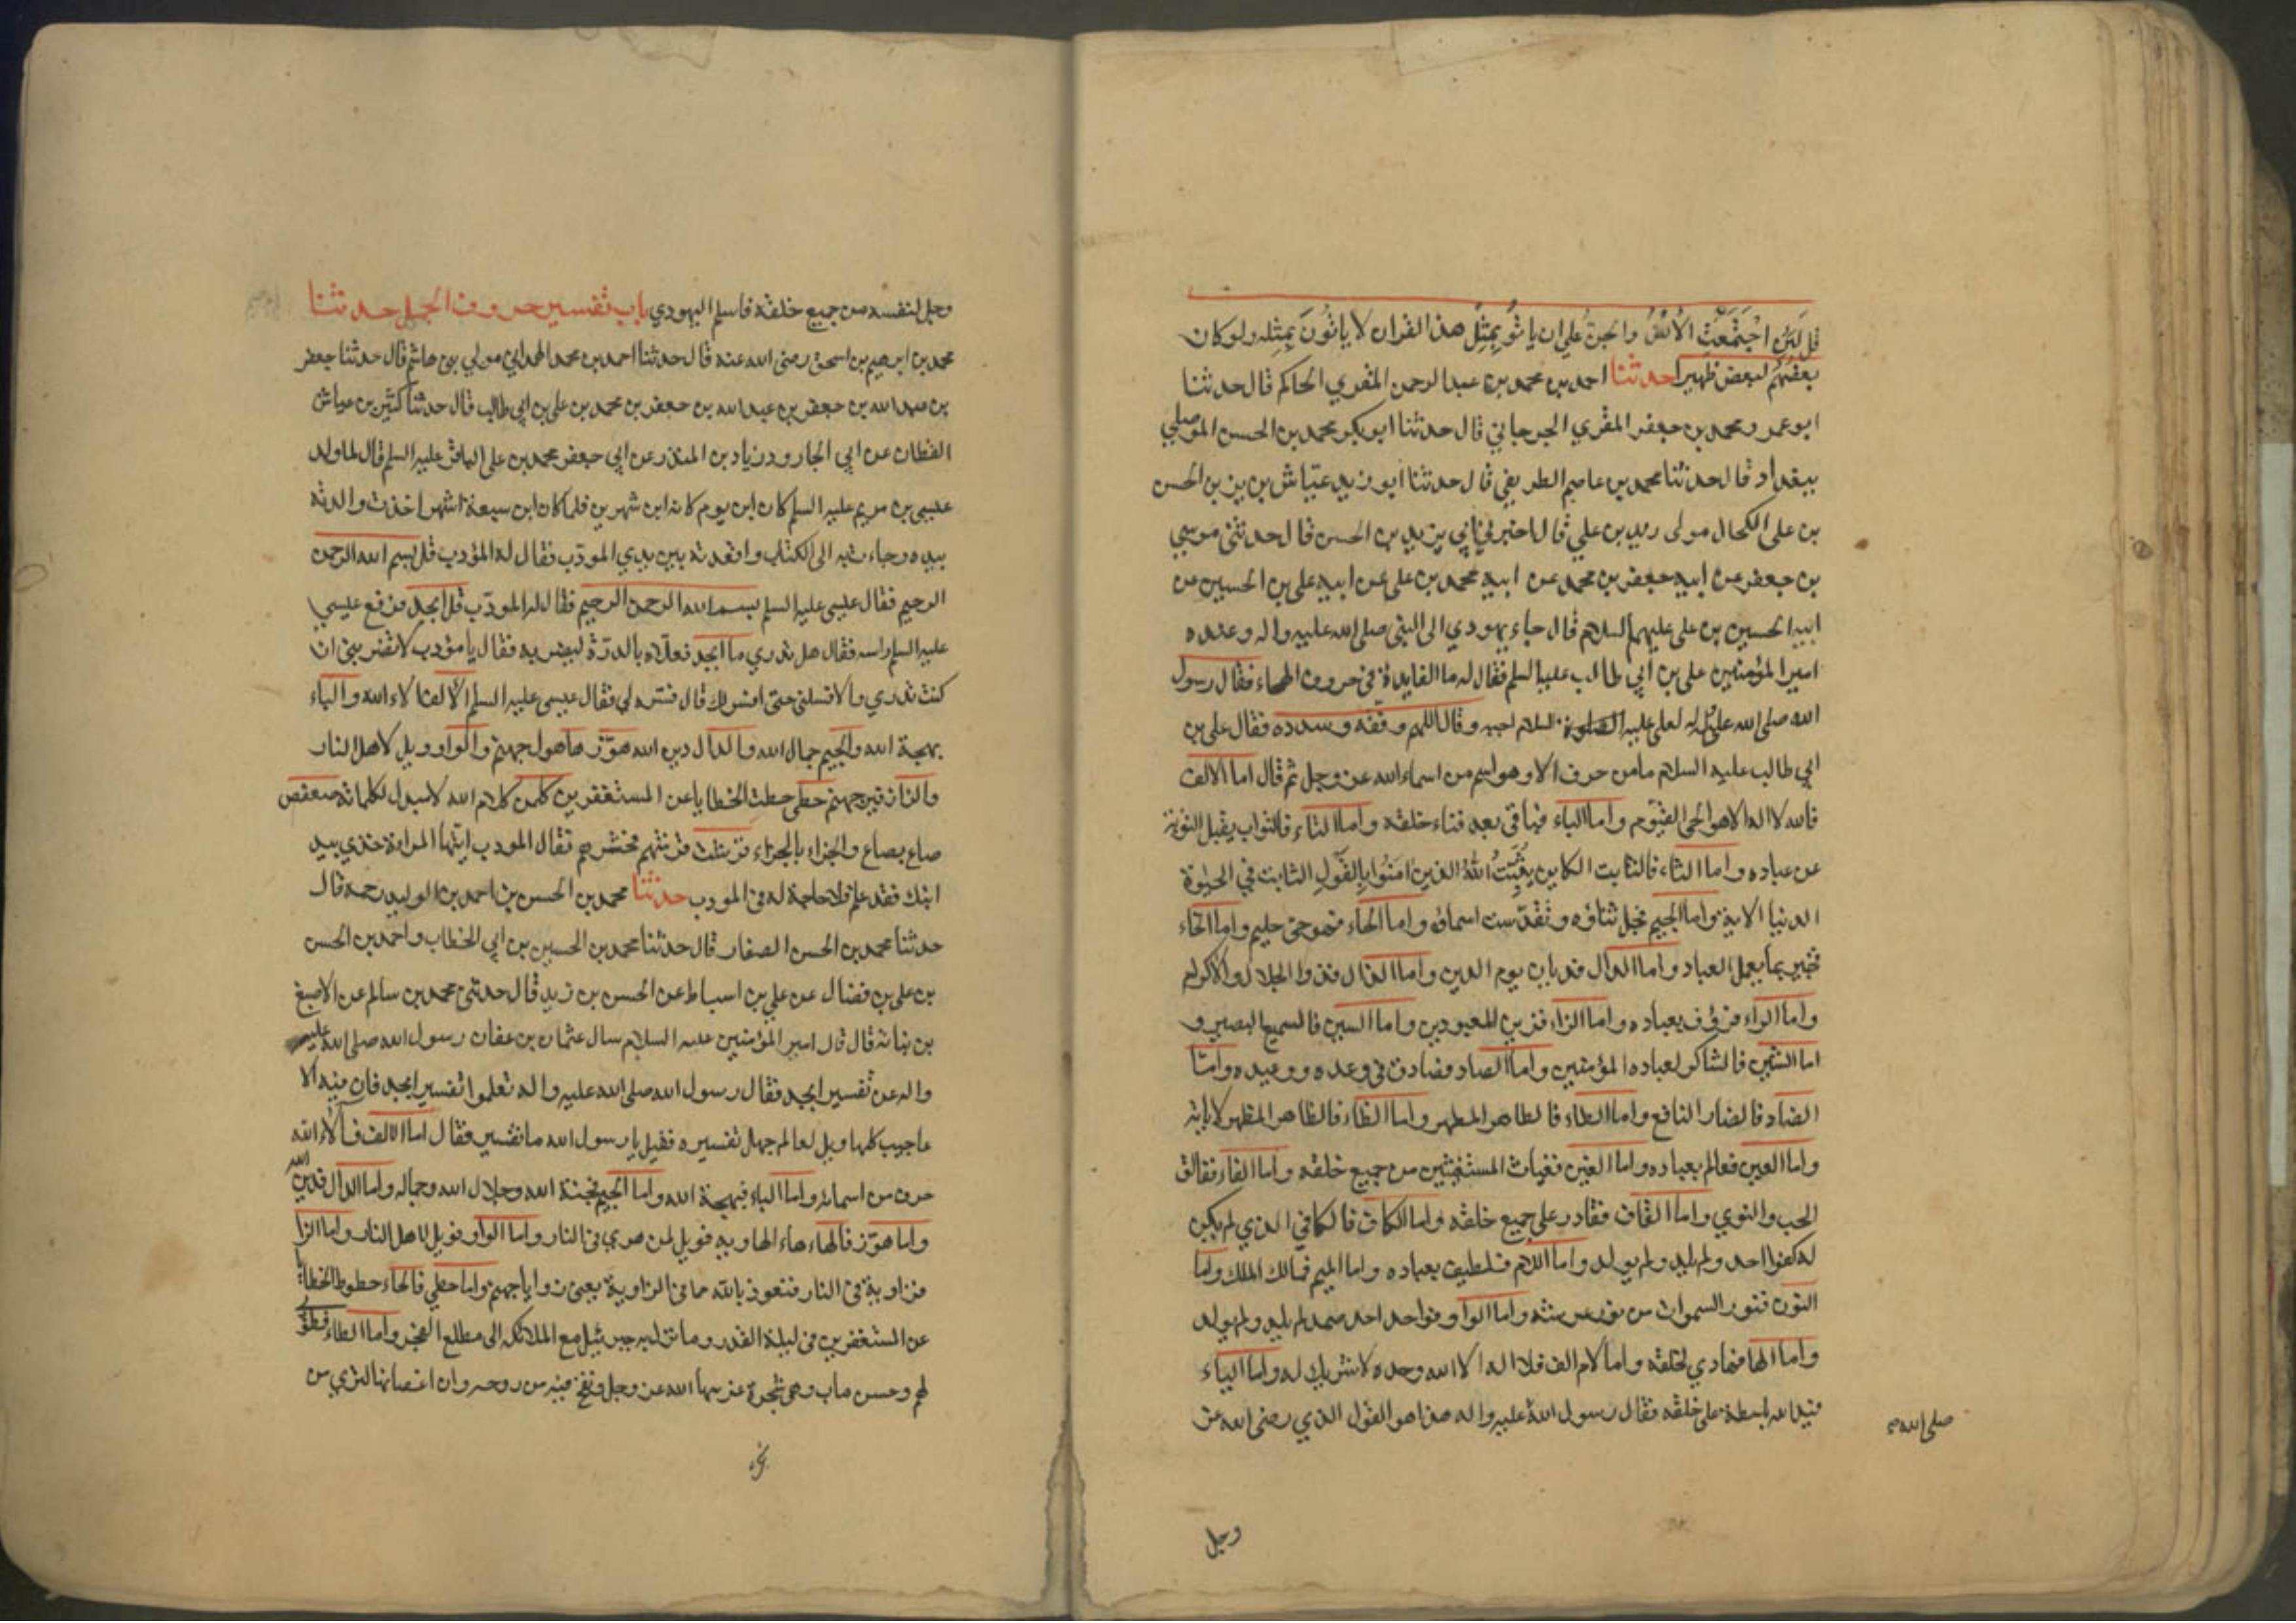 قل لَئِن اجْتَمَعَتِ الْاُنْسُ والجنُّ عَلى ان ياتُو بِمِثْلِ هذا القران لا ياتُونَ بِمِثله ولو كان
بعضهُم لبعض ظهيرا حدثنا احمد بن محمد بن عبد الرحمن المقري الحاكم قال حدثنا
ابو عمر ومحمد بن جعفر المقري الجرجاني قال حدثنا ابو بكر محمد بن الحسن الموصلي
ببغداد قال حدثنا محمد بن عاصم الطريفي قال حدثنا ابو زيد عياش بن يزيد بن الحسن
بن على الكحال مولى زيد بن علي قال اخبرني ابي يزيد بن الحسن قال حدثنى موسى
بن جعفر عن ابيه جعفر بن محمد عن ابيه محمد بن على عن ابيه على بن الحسين عن
ابيه الحسين بن على عليهم السلام قال جاء يهودي الى النبى صلى الله عليه واله وعنده
امير المؤمنين على بن ابي طالب عليه السلم فقال له ما الفايدة في حروف الهجاء فقال رسول
الله صلى الله عليه واله لعلى عليه السلام اجبه وقال اللهم وفقه وسدده فقال على بن
ابي طالب عليه السلام ما من حرف الا وهو اسم من اسماء الله عز وجل ثم قال اما الالف
فالله لا اله الا هو الحى القيوم واما الباء فباقى بعد فناء خلقه واما التاء فالتواب يقبل التوبة
عن عباده واما الثاء فالثابت الكاين يُثَبِّتُ اللهُ الذين امَنُوا بِالقَولِ الثابت في الحيوة
الدنيا الاية واما الجيم فجل ثناؤه وتقدّست اسماؤه واما الحاء فهو حى حليم واما الخاء
فخبير بما يعمل العباد واما الدال فديان يوم الدين واما الذال فذو الجلال والاكرام
واما الراء فرؤف بعباده واما الزاء فزين المعبودين واما السين فالسميع البصير و
اما الشين فالشاكر لعباده المؤمنين واما الصاد فصادق فى وعده ووعيده واما
الضاد فالضار النافع واما الطاء فالطاهر المطهر واما الظاء فالظاهر المظهر لاياته
واما العين فعالم بعباده واما الغين فغياث المستغيثين من جميع خلقه واما الفاء ففالق
الحب والنوي واما القاف فقادر على جميع خلقه واما الكاف فالكافي الذي لم يكن
له كفوا احد ولم يلد ولم يولد واما اللام فلطيف بعباده واما الميم فمالك الملك واما
النون فنور السموات من نور عرشه واما الواو فواحد احد صمد لم يلد ولم يولد
واما الها فهادي لخلقه واما لام الف فلا اله الا الله وحده لا شريك له واما الياء
فيد الله باسطة على خلقه فقال رسول الله عليه واله هذا هو القول الذي رضى الله عز
صلى الله
وجل
وجل لنفسه من جميع خلقه فاسلم اليهودي باب تفسير حروف الجمل حدثنا
محمد بن ابرهيم بن اسحق رضى الله عنه قال حدثنا احمد بن محمد الهمداني مولي بنى هاشم قال حدثنا جعفر
بن عبد الله بن جعفر بن عبد الله بن جعفر بن محمد بن على بن ابي طالب قال حدثنا كثير بن عياش
القطان عن ابي الجارود زياد بن المنذر عن ابي جعفر محمد بن على الباقر عليه السلم قال لما ولد
عيسى بن مريم عليه السلم كان ابن يوم كانه ابن شهرين فلما كان ابن سبعة اشهر اخذت والدته
بيده وجاءت به الى الكتاب واقعدته بين يدي المودّب فقال له المؤدب قل بسم الله الرحمن
الرحيم فقال عيسى عليه السلم بسم الله الرحمن الرحيم فقال له المودّب قل ابجد فرفع عيسى
عليه السلم راسه فقال هل تدري ما ابجد فعلاه بالدرّة ليضربه فقال يا مؤدب لا تضربنى ان
كنت تدري والا فسلنى حتى افسر لك قال فسره لي فقال عيسى عليه السلم الالف الاء الله والباء
بهجة الله والجيم جمال الله والدال دين الله هوّز ها هول جهنم والواو ويل لاهل النار
والزا زفير جهنم حطى حطت الخطايا عن المستغفرين كلمن كلام الله لا مبدل لكلماته سعفص
صاع بصاع والجزاء بالجزاء قرشت قرشهم فحشرهم فقال المودب ايتها المراة خذي بيد
ابنك فقد علم فلا حاجة له فى المودب حدثنا محمد بن الحسن بن احمد بن الوليد رحمه قال
حدثنا محمد بن الحسن الصفار قال حدثنا محمد بن الحسين بن ابي الخطاب واحمد بن الحسن
بن على بن فضال عن علي بن اسباط عن الحسن بن زيد قال حدثنى محمد بن سالم عن الاصبغ
بن نباتة قال قال امير المؤمنين عليه السلام سال عثمان بن عفان رسول الله صلى الله عليه
واله عن تفسير ابجد فقال رسول الله صلى الله عليه واله تعلموا تفسير ابجد فان فيه الا
عاجيب كلها ويل لعالم جهل تفسيره فقيل يا رسول الله ما تفسير فقال اما الالف فآلاء الله
حرف من اسمائه واما الباء فبهجة الله واما الجيم فجنة الله وجلال الله وجماله واما الدال فدين الله
واما هوّز فالهاء هاء الهاويه فويل لمن هوي فى النار واما الواو فويل لاهل النار واما الزا
فزاوية فى النار فنعوذ بالله مما فى الزاوية يعنى زوايا جهنم واما حطي فالحاء حطوط الخطايا
عن المستغفرين فى ليلة القدر وما نزل به جبرئيل مع الملائكه الى مطلع الفجر واما الطاء فطوبى
لهم وحسن ماب وهى شجرة غرسها الله عز وجل ونفخ فيه من روحه وان اغصانها لتري من